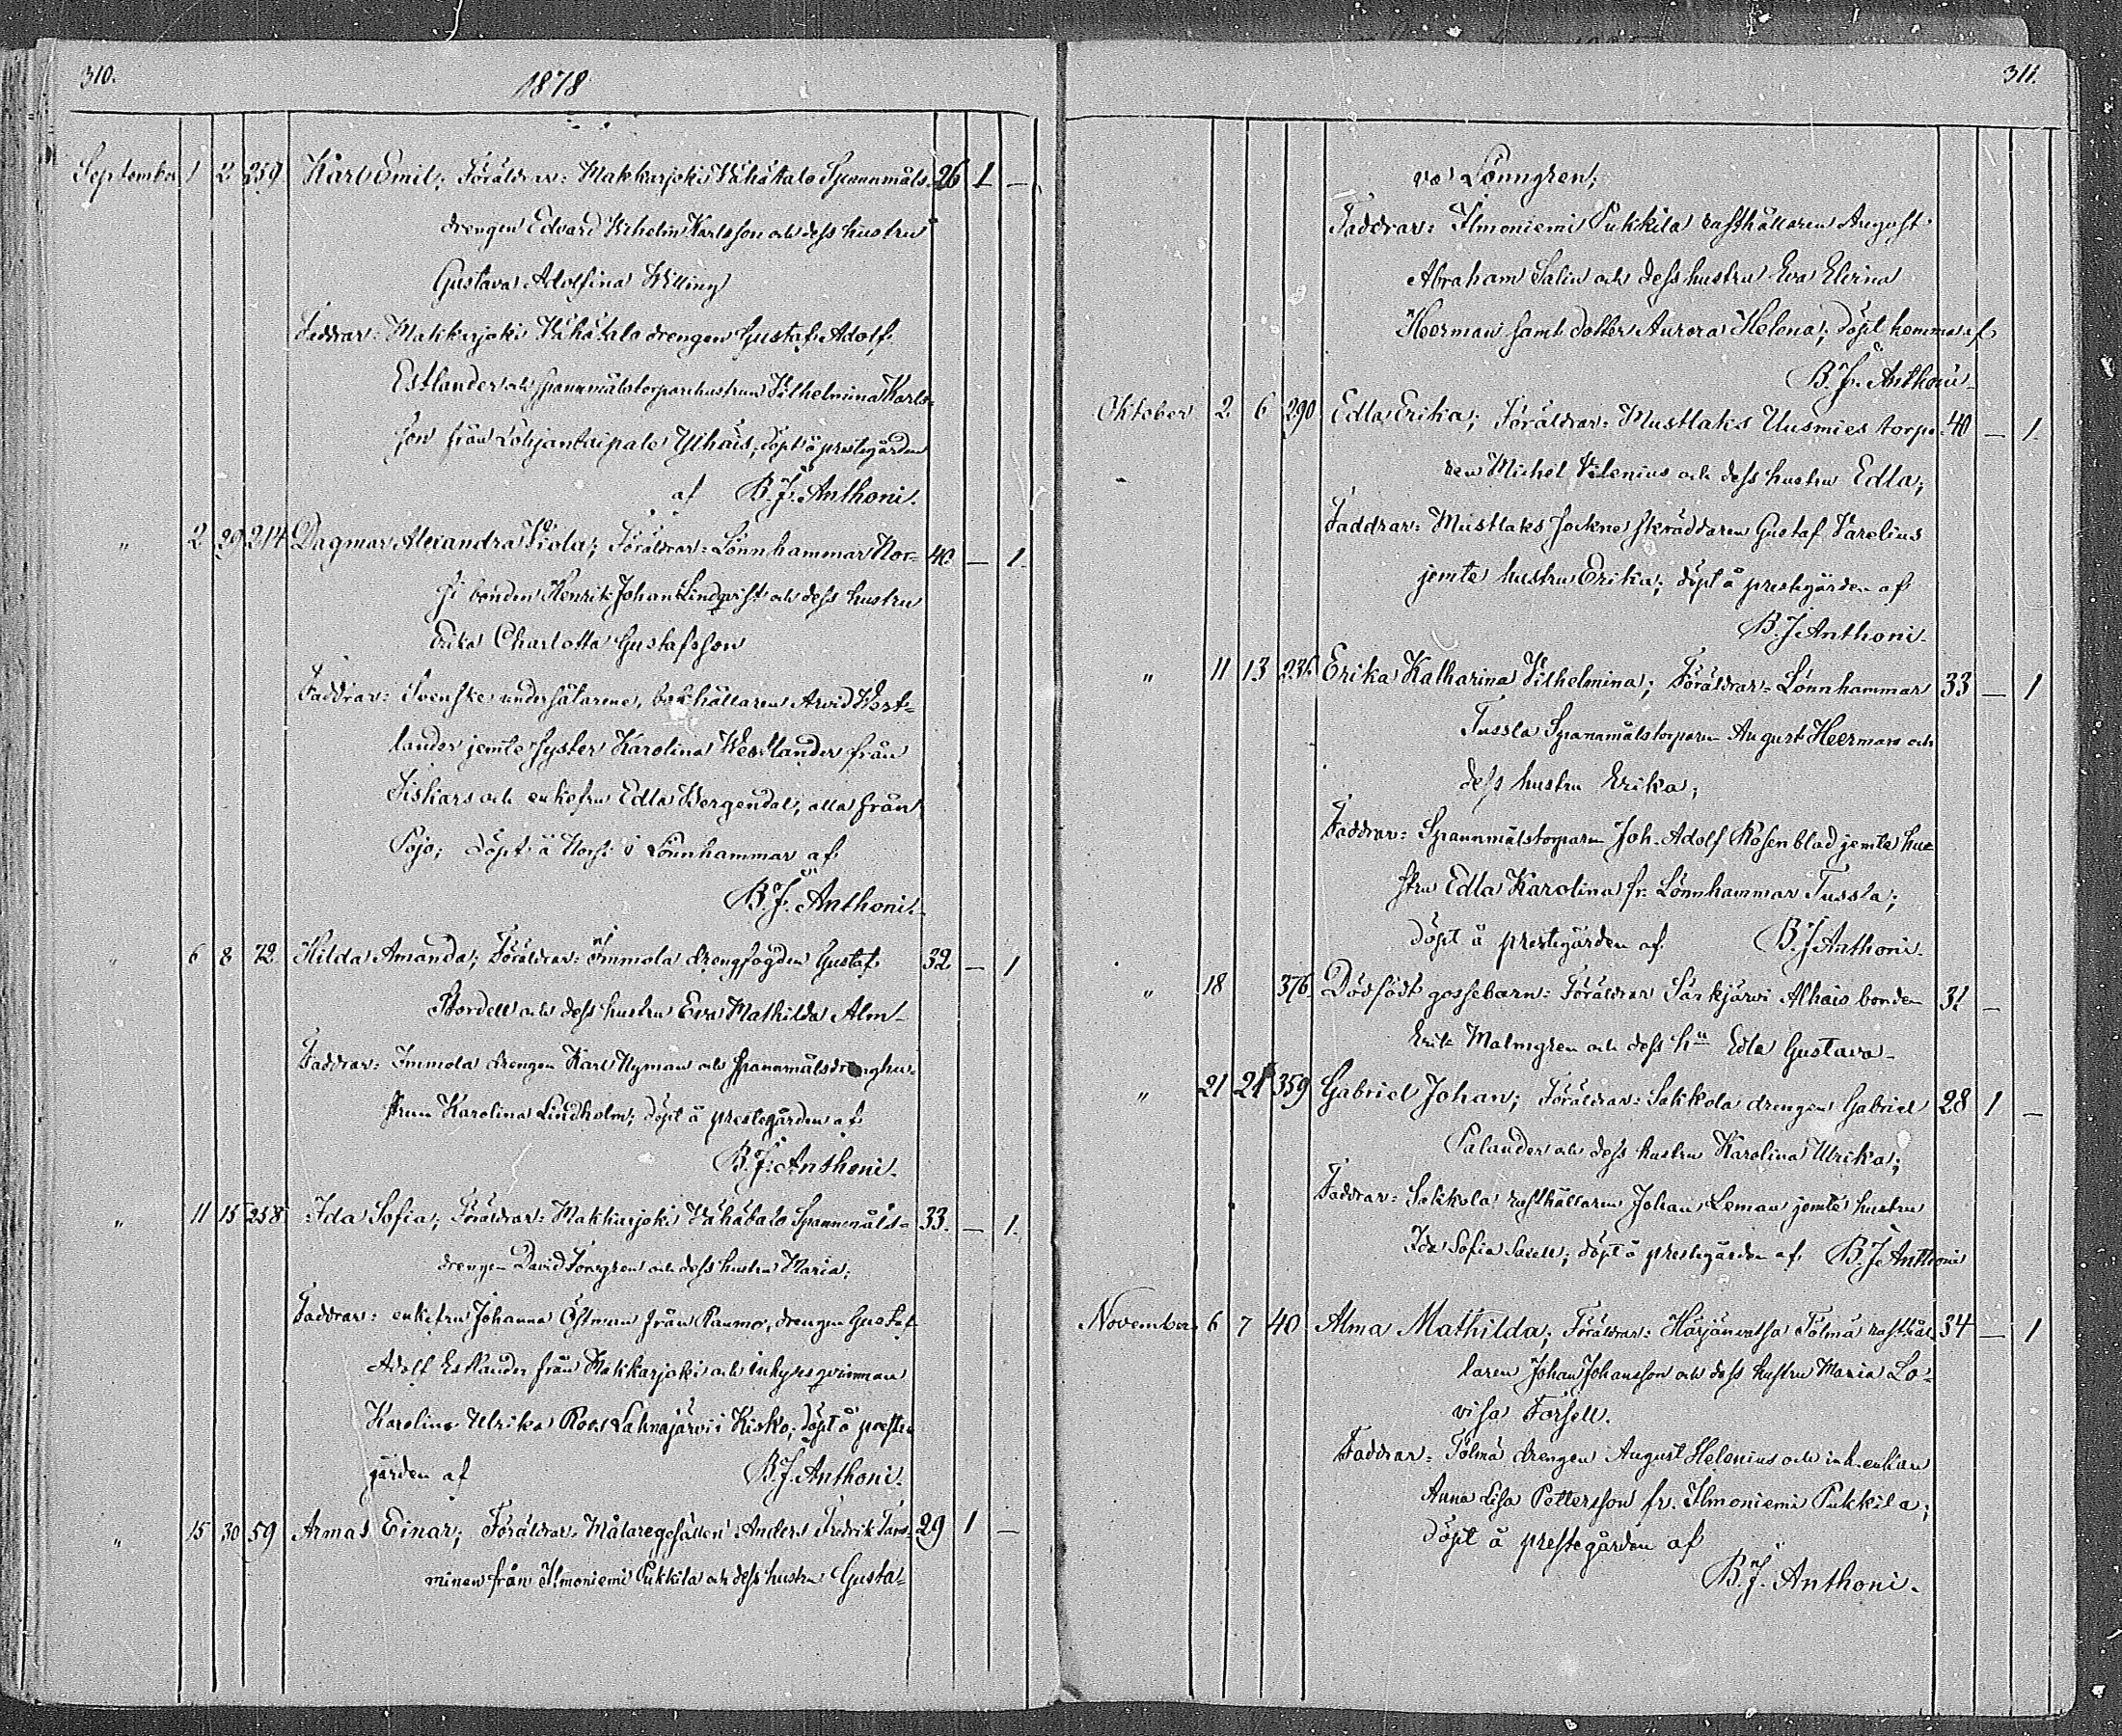 310.
1878
September 1 2 259. Karl Emil; Föräldrar: Makkarjoki Vähätalo Spannmåls- 26 1 —
drengen Edvard Vilhelm Karlsson och dess hustru
Gustava Adolfina Willing
Faddrar: Makkarjoki Vähätalo drengen Gustaf Adolf
Estlander och spannmålstorparhustrun Vilhelmina Karls-
son från Lohjantaipale Ylhäis, döpt å prestegården
af B. J. Anthoni.
" 2 29 214 Dagmar Alexandra Viola; Föräldrar: Lönnhammar Nor- 40. — 1.
si bonden Henrik Johan Lindqvist och dess hustru
Erika Charlotta Gustafsson
Faddrar: Svenske undersåtarene, bokhållaren Arvid West-
lander jemte syster Karolina Westlander från
Fiskars och enkefru Edla Bergendal, alla från
Pojo; döpt å Norsi i Lönnhammar af
B. J. Anthoni.
" 6 8 72 Hilda Amanda; Föräldrar: Immola drengfogden Gustaf 32 — 1
Nordell och dess hustru Eva Mathilda Alm-
Faddrar: Immola drengen Karl Nyman och spannmålsdrenghu-
strun Karolina Lindholm; döpt å prestegården af
B. J. Anthoni.
" 11 15 258 Ida Sofia; Föräldrar: Makkarjoki Vähätalo Spannmåls- 33. — 1.
drengen David Forsgren och dess hustru Maria;
Faddrar: enkefru Johanna Östman från Raumo, drengen Gustaf
Adolf Estlander från Makkarjoki och inhysesqvinnan
Karolina Ulrika Roos Lahnajärvi i Kisko; döpt å preste-
gården af B. J. Anthoni.
" 15 30 59 Armas Einar; Föräldrar: Målaregesällen Anders Fredrik Tam- 29 1 —
minen från Ilmoniemi Pukkila och dess hustru Gusta-
311.
va Lönngren;
Faddrar: Ilmoniemi Pukkila rusthållaren August
Abraham Salin och dess hustru Eva Elvina
Heerman samt dotter Aurora Helena; döpt hemma af
B. J. Anthoni.
Oktober 2 6 290 Edla Erika; Föräldrar: Mustlaks Uusmies torpa- 40 — 1.
ren Michel Vilenius och dess hustru Edla;
Faddrar: Mustlaks sockneskräddaren Gustaf Varelius
jemte hustru Erika; döpt å prestegården af
B. J. Anthoni.
" 11 13 236 Erika Katharina Vilhelmina; Föräldrar: Lönnhammar 33 — 1
Tussla Spannmålstorparen August Heerman och
dess hustru Erika;
Faddrar: Spannmålstorparen Joh. Adolf Rosenblad jemte hu-
stru Edla Karolina fr. Lönnhammar Tussla;
döpt å prestegården af B. J. Anthoni.
" 18 376. Dödfödt gossebarn: Föräldrar Särkjärvi Alhais bonden 31 —
Erik Malmgren och dess hu Edla Gustava-
" 21 21 359 Gabriel Johan; Föräldrar: Sakkola drengen Gabriel 28 1 —
Palander och dess hustru Karolina Ulrika;
Faddrar: Sakkola rusthållaren Johan Leman jemte hustru
Ida Sofia; döpt å prestegården af B. J. Anthoni
November 6 7 40 Alma Mathilda; Föräldrar: Härjänvatsa Tölmä rusthål- 34 — 1
laren Johan Johansson och dess hustru Maria Lo-
visa Forsell.
Faddrar: Tölmä drengen August Helenius och inh. enkan
Anna Lisa Pettersson fr. Ilmoniemi Pukkila;
döpt å prestegården af
B. J. Anthoni.